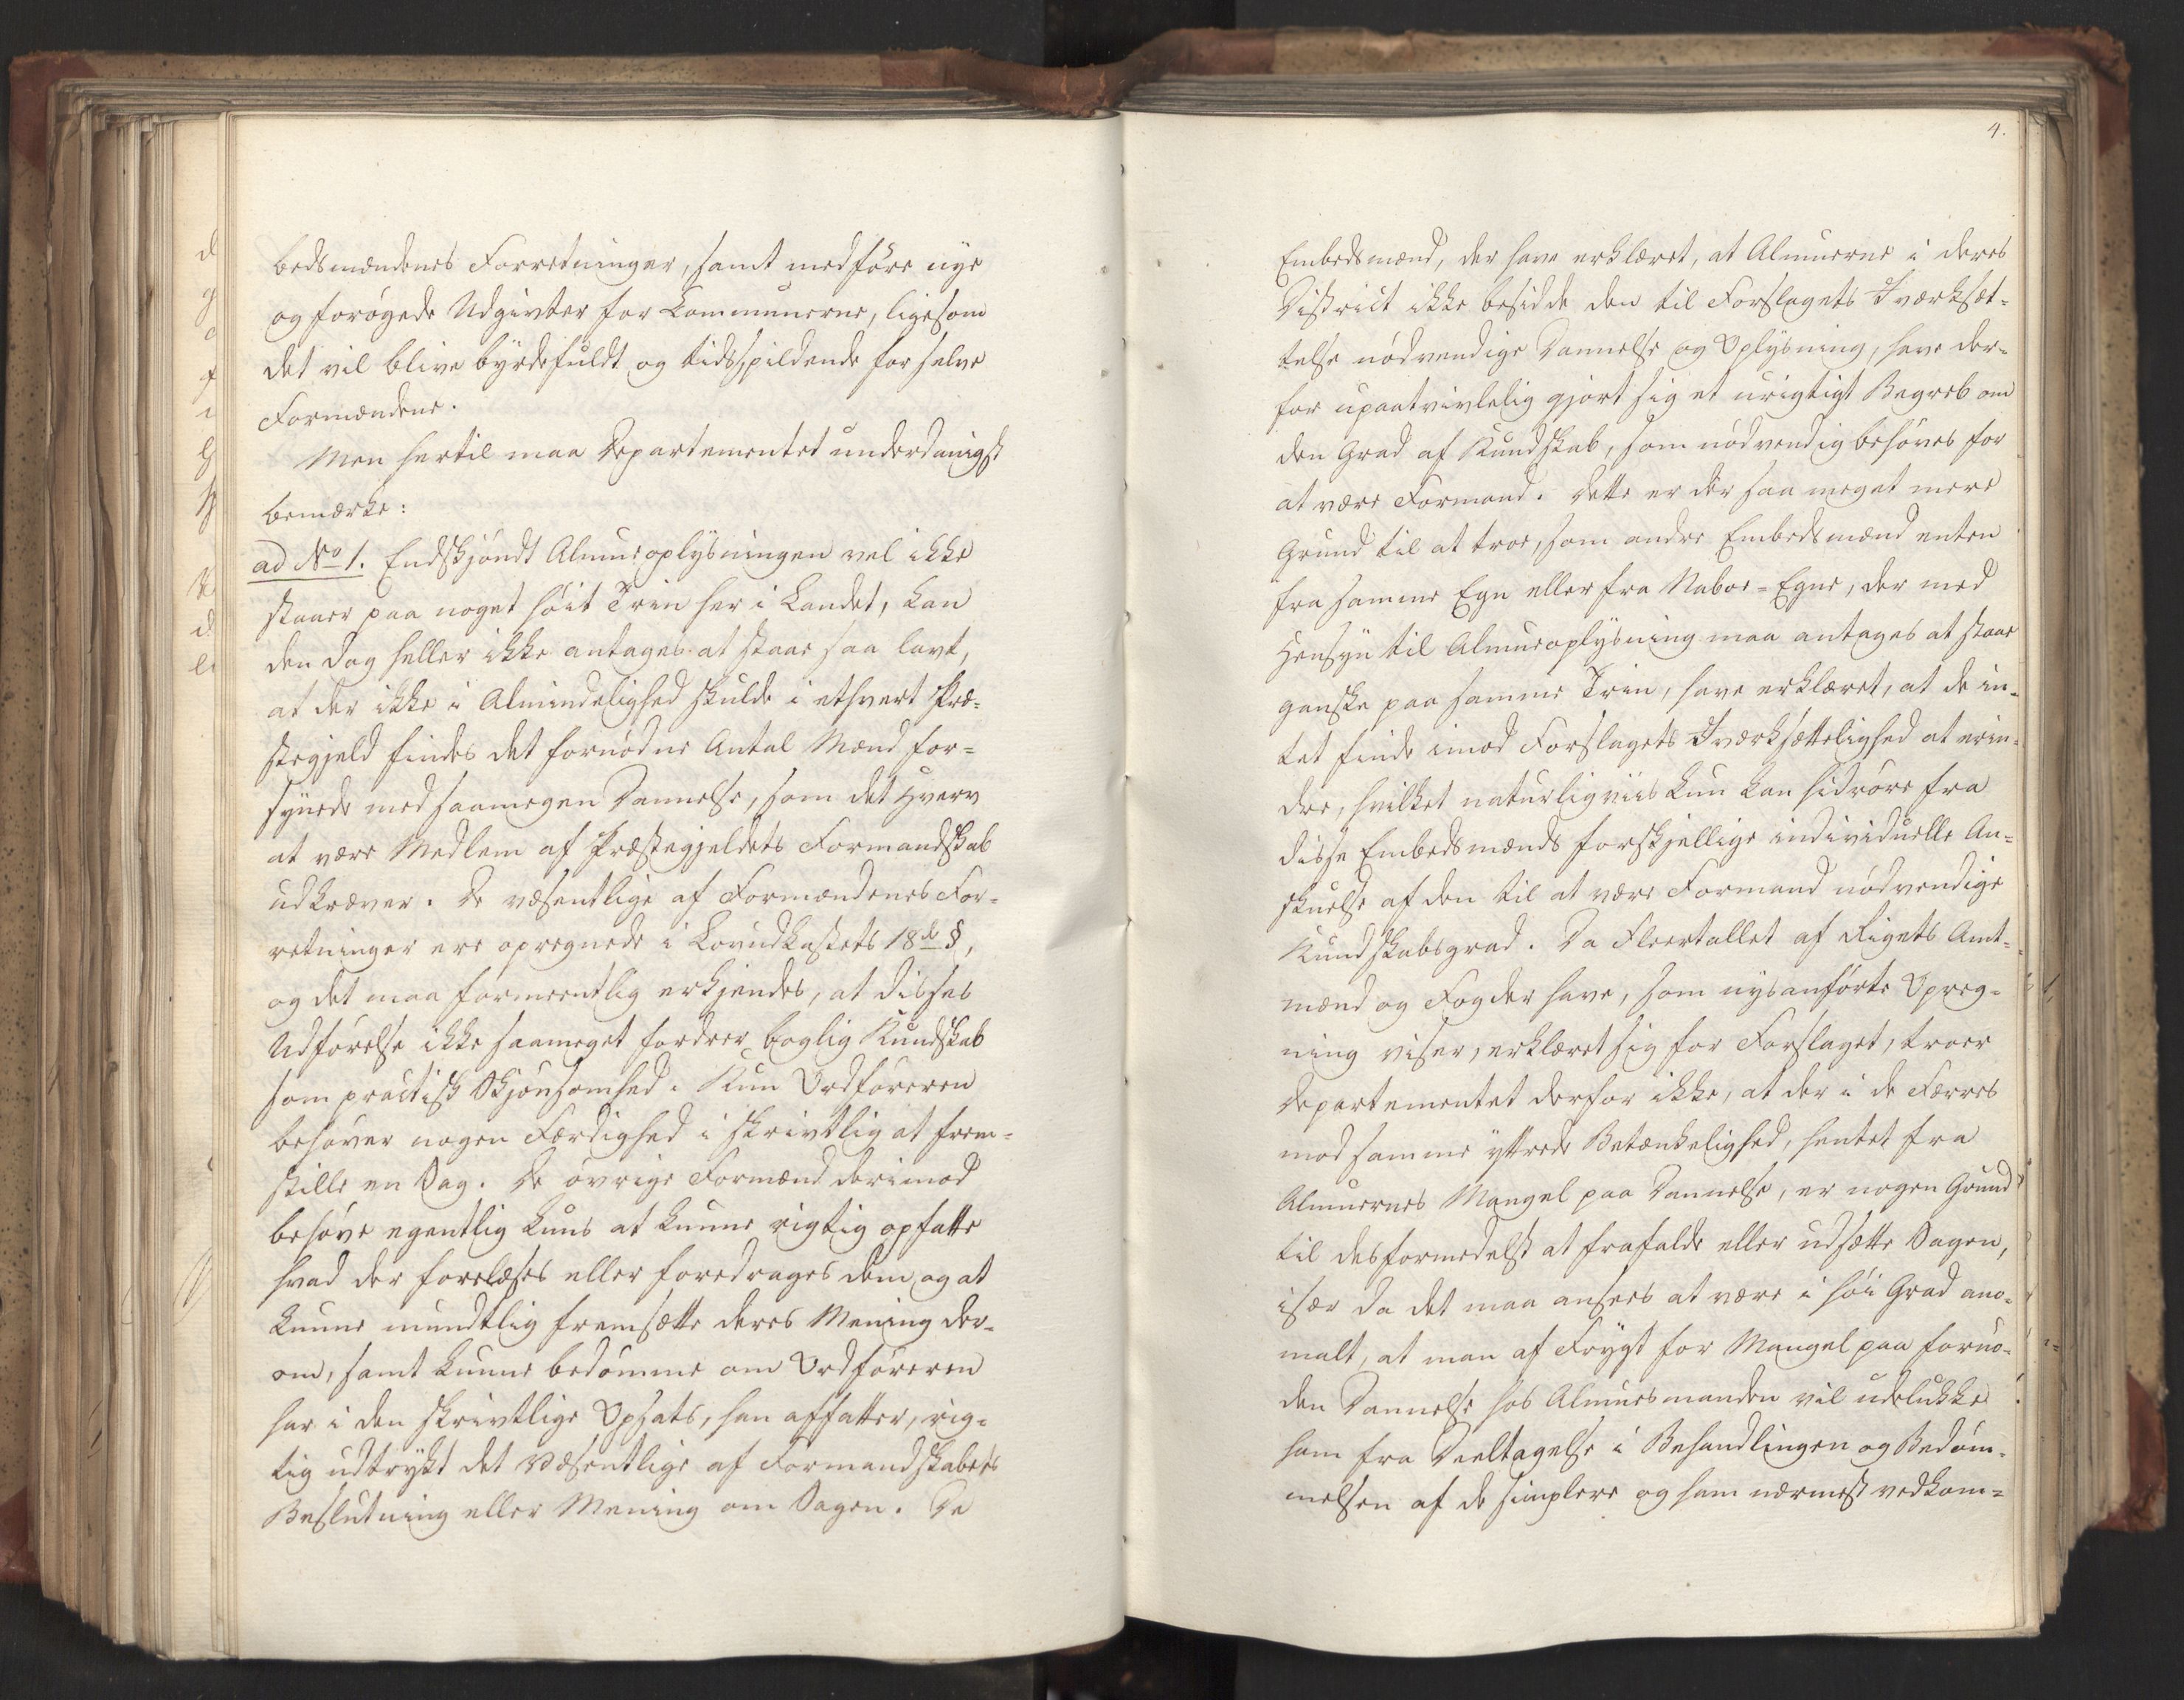 bedsmændenes Forretninger, samt medføre nye
og forøgede Udgivter for Communerne, ligesom
det vil blive byrdefuldt og tidsspildende for selve
Formændene.
Men hertil maa Departementet underdanigst
bemærke:
ad No 1. Endskjøndt Almueoplysningen vel ikke
staaer paa noget høit Trin her i Landet, kan
den dog heller ikke antages at staae saa lavt,
at der ikke i Almindelighed skulde i ethvert Præ-
stegjeld findes det fornødne Antal Mænd for-
synede med saamegen Dannelse, som det Hverv
at være Medlem af Præstegjeldets Formandskab
udkræver. De væsentlige af Formændenes For-
retninger ere opregnede i Lovudkastets 18de §,
og det maa formeentlig erkjendes, at disses
Udførelse ikke saameget fordrer boglig Kundskab
som practisk Skjønsomhed. Kun Ordføreren
behøver nogen Færdighed i skrivtlig at frem-
stille en Sag. De øvrige Formænd derimod
behøve egentlig kuns at kunne rigtig opfatte
hvad der forelæses eller foredrages dem, og at
kunne mundtlig fremsætte deres Mening der-
om, samt kunne bedømme om Ordføreren
har i den skrivtlige Opsats, han affatter, rig-
tig udtrykt det væsentlige af Formandskabets
Beslutning eller Mening om Sagen. De
4.
Embedsmænd, der have erklæret, at Almuerne i deres
District ikke besidde den til Forslagets Iværksæt-
telse nødvendige Dannelse og Oplysning, have der-
for upaatvivlelig gjort sig et urigtigt Begreb om
den Grad af Kundskab, som nødvendig behøves for
at være Formand. Dette er der saa meget mere
Grund til at troe, som andre Embedsmænd enten
fra samme Egn eller fra Naboe-Egne, der med
Hensyn til Almueoplysning maa antages at staae
ganske paa samme Trin, have erklæret, at de in-
tet finde imod Forslagets Iværksættelighed at erin-
dre, hvilket naturligviis kun kan hidrøre fra
disse Embedsmænds forskjellige individuelle An-
skuelse af den til at være Formand nødvendige
Kundskabsgrad. Da Fleertallet af Rigets Amt-
mænd og Fogder have, som nysanførte Opreg-
ning viser, erklæret sig for Forslaget, troer
Departementet derfor ikke, at der i de Færres
mod samme yttrede Betænkelighed, hentet fra
Almuernes Mangel paa Dannelse, er nogen Grund
til desformedelst at frafalde eller udsætte Sagen,
især da det maa ansees at være i høi Grad ano-
malt, at man af Frygt for Mangel paa fornø-
den Dannelse hos Almuesmanden vil udelukke
ham fra Deeltagelse i Behandlingen og Bedøm-
melsen af de simplere og ham nærmest vedkom-